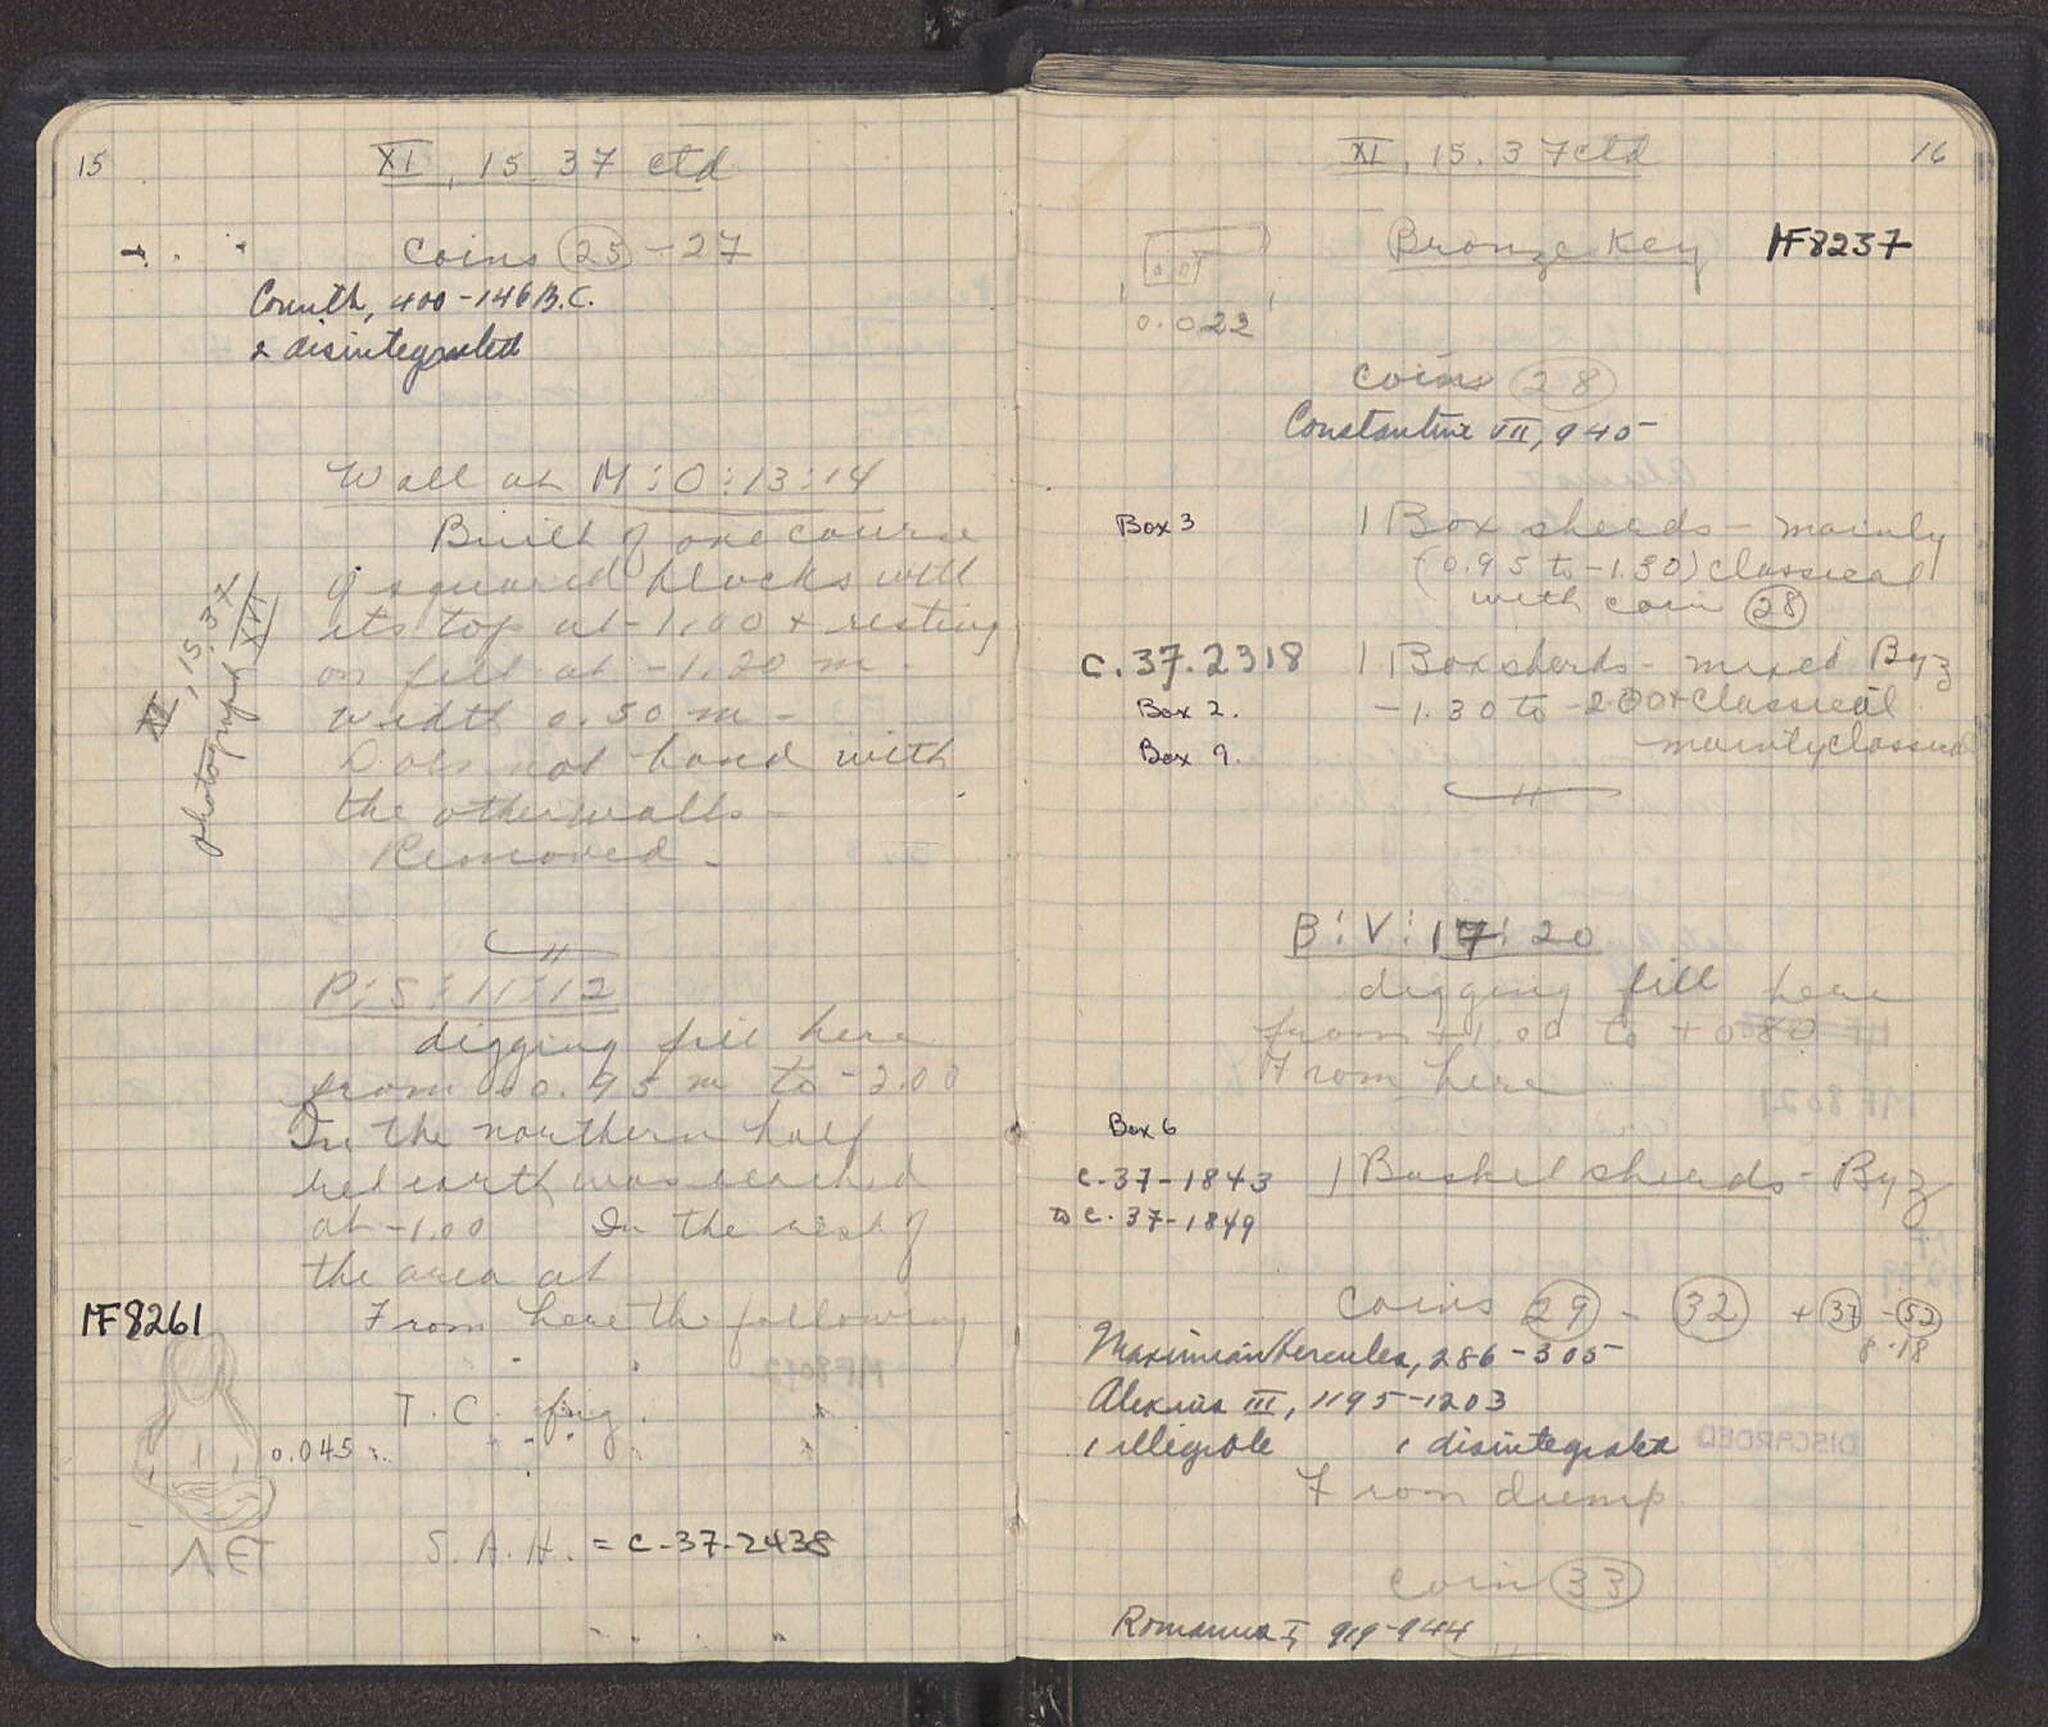 15
XI, 15. 37 ctd
Coins 25 - 27
Corinth, 400-146 B.C.
2 disintegrated
Wall at M:O:13:14
Built of one course
of squared blocks with
its top at -1.00 + resting
on fill at -1.20 m -
width 0.50 m -
Does not bond with
the other walls -
Removed -
XI, 15. 37
photograph XVI
P:S:11:12
digging fill here
from -0.95 m to -2.00
In the northern half
red earth was reached
at -1.00 In the rest of
the area at
From here the following
MF8261
T.C. fig.
0.045
ΛΕΤ
S.A.H. = C-37-2438
XI, 15. 37 ctd
16
Bronze Key MF8237
0.022
Coins 28
Constantine VII, 945
Box 3 1 Box sherds - mainly
(0.95 to -1.30) classical
with coin 28
C.37.2318 1 Box sherds - mixed Byz
Box 2. -1.30 to -2.00 + classical
Box 9. mainly classical
B:V:17:20
digging fill here
from +1.00 to +0.80
From here
Box 6
C-37-1843 1 Basket sherds - Byz
to C-37-1849
Coins 29 - 32 + 37 - 52
8-18
Maximian Hercules, 286-305
Alexius III, 1195-1203
1 illegible 1 disintegrated
From dump
coin 33
Romanus I, 919-944